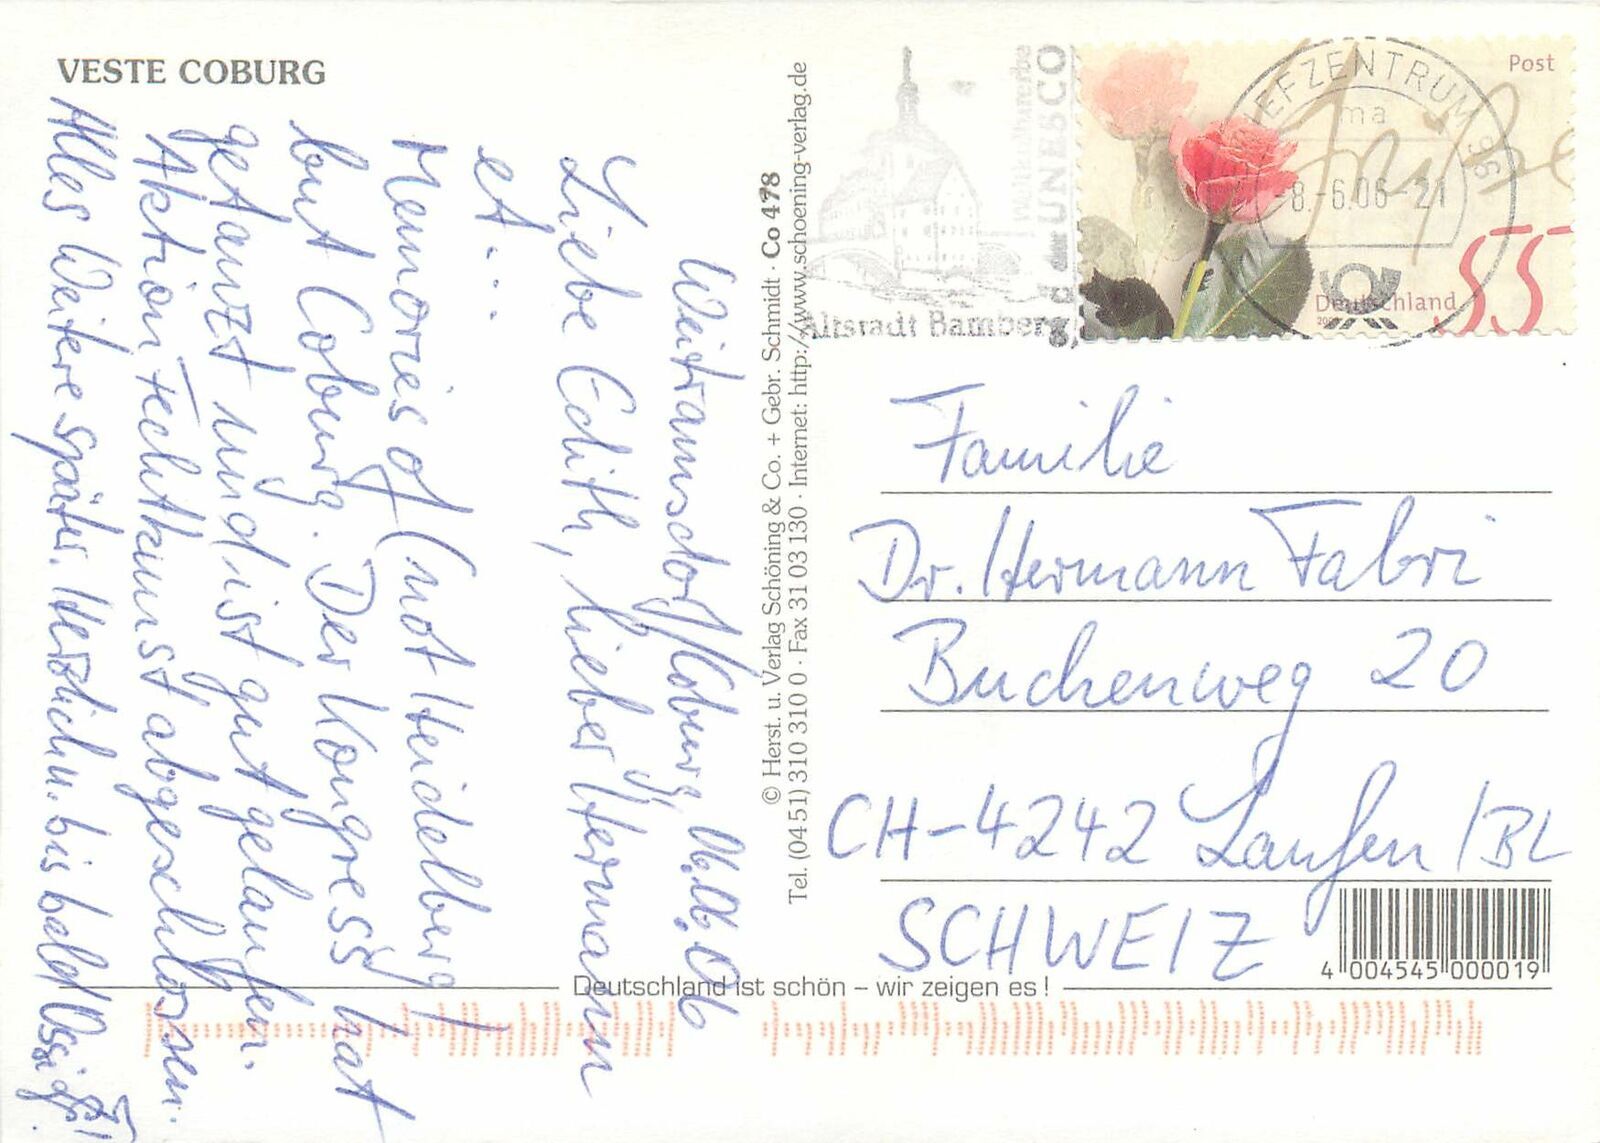 VESTE COBURG
Weitramsdorf/Coburg, 06.06.06
Liebe Edith, lieber Hermann
et...
Memories of (not Heidelberg)
but Coburg. Der Kongress hat
getanzt und ist gut gelaufen.
Aktion Fechtkunst abgeschlossen.
Alles Weitere später. Herzlich u. bis bald
© Herst. u. Verlag Schöning & Co. + Gebr. Schmidt · Co 478
Tel. (04 51) 310 310 0 · Fax 31 03 130 · Internet: http://www.schoening-verlag.de
Weltkulturerbe
der UNESCO
Altstadt Bamberg
BRIEFZENTRUM 96
ma
-8.-6.06-21
Post
Grüße
Deutschland
55
Familie
Dr. Hermann Fabri
Buchenweg 20
CH-4242 Laufen /BL
SCHWEIZ
4 004545 000019
Deutschland ist schön – wir zeigen es !